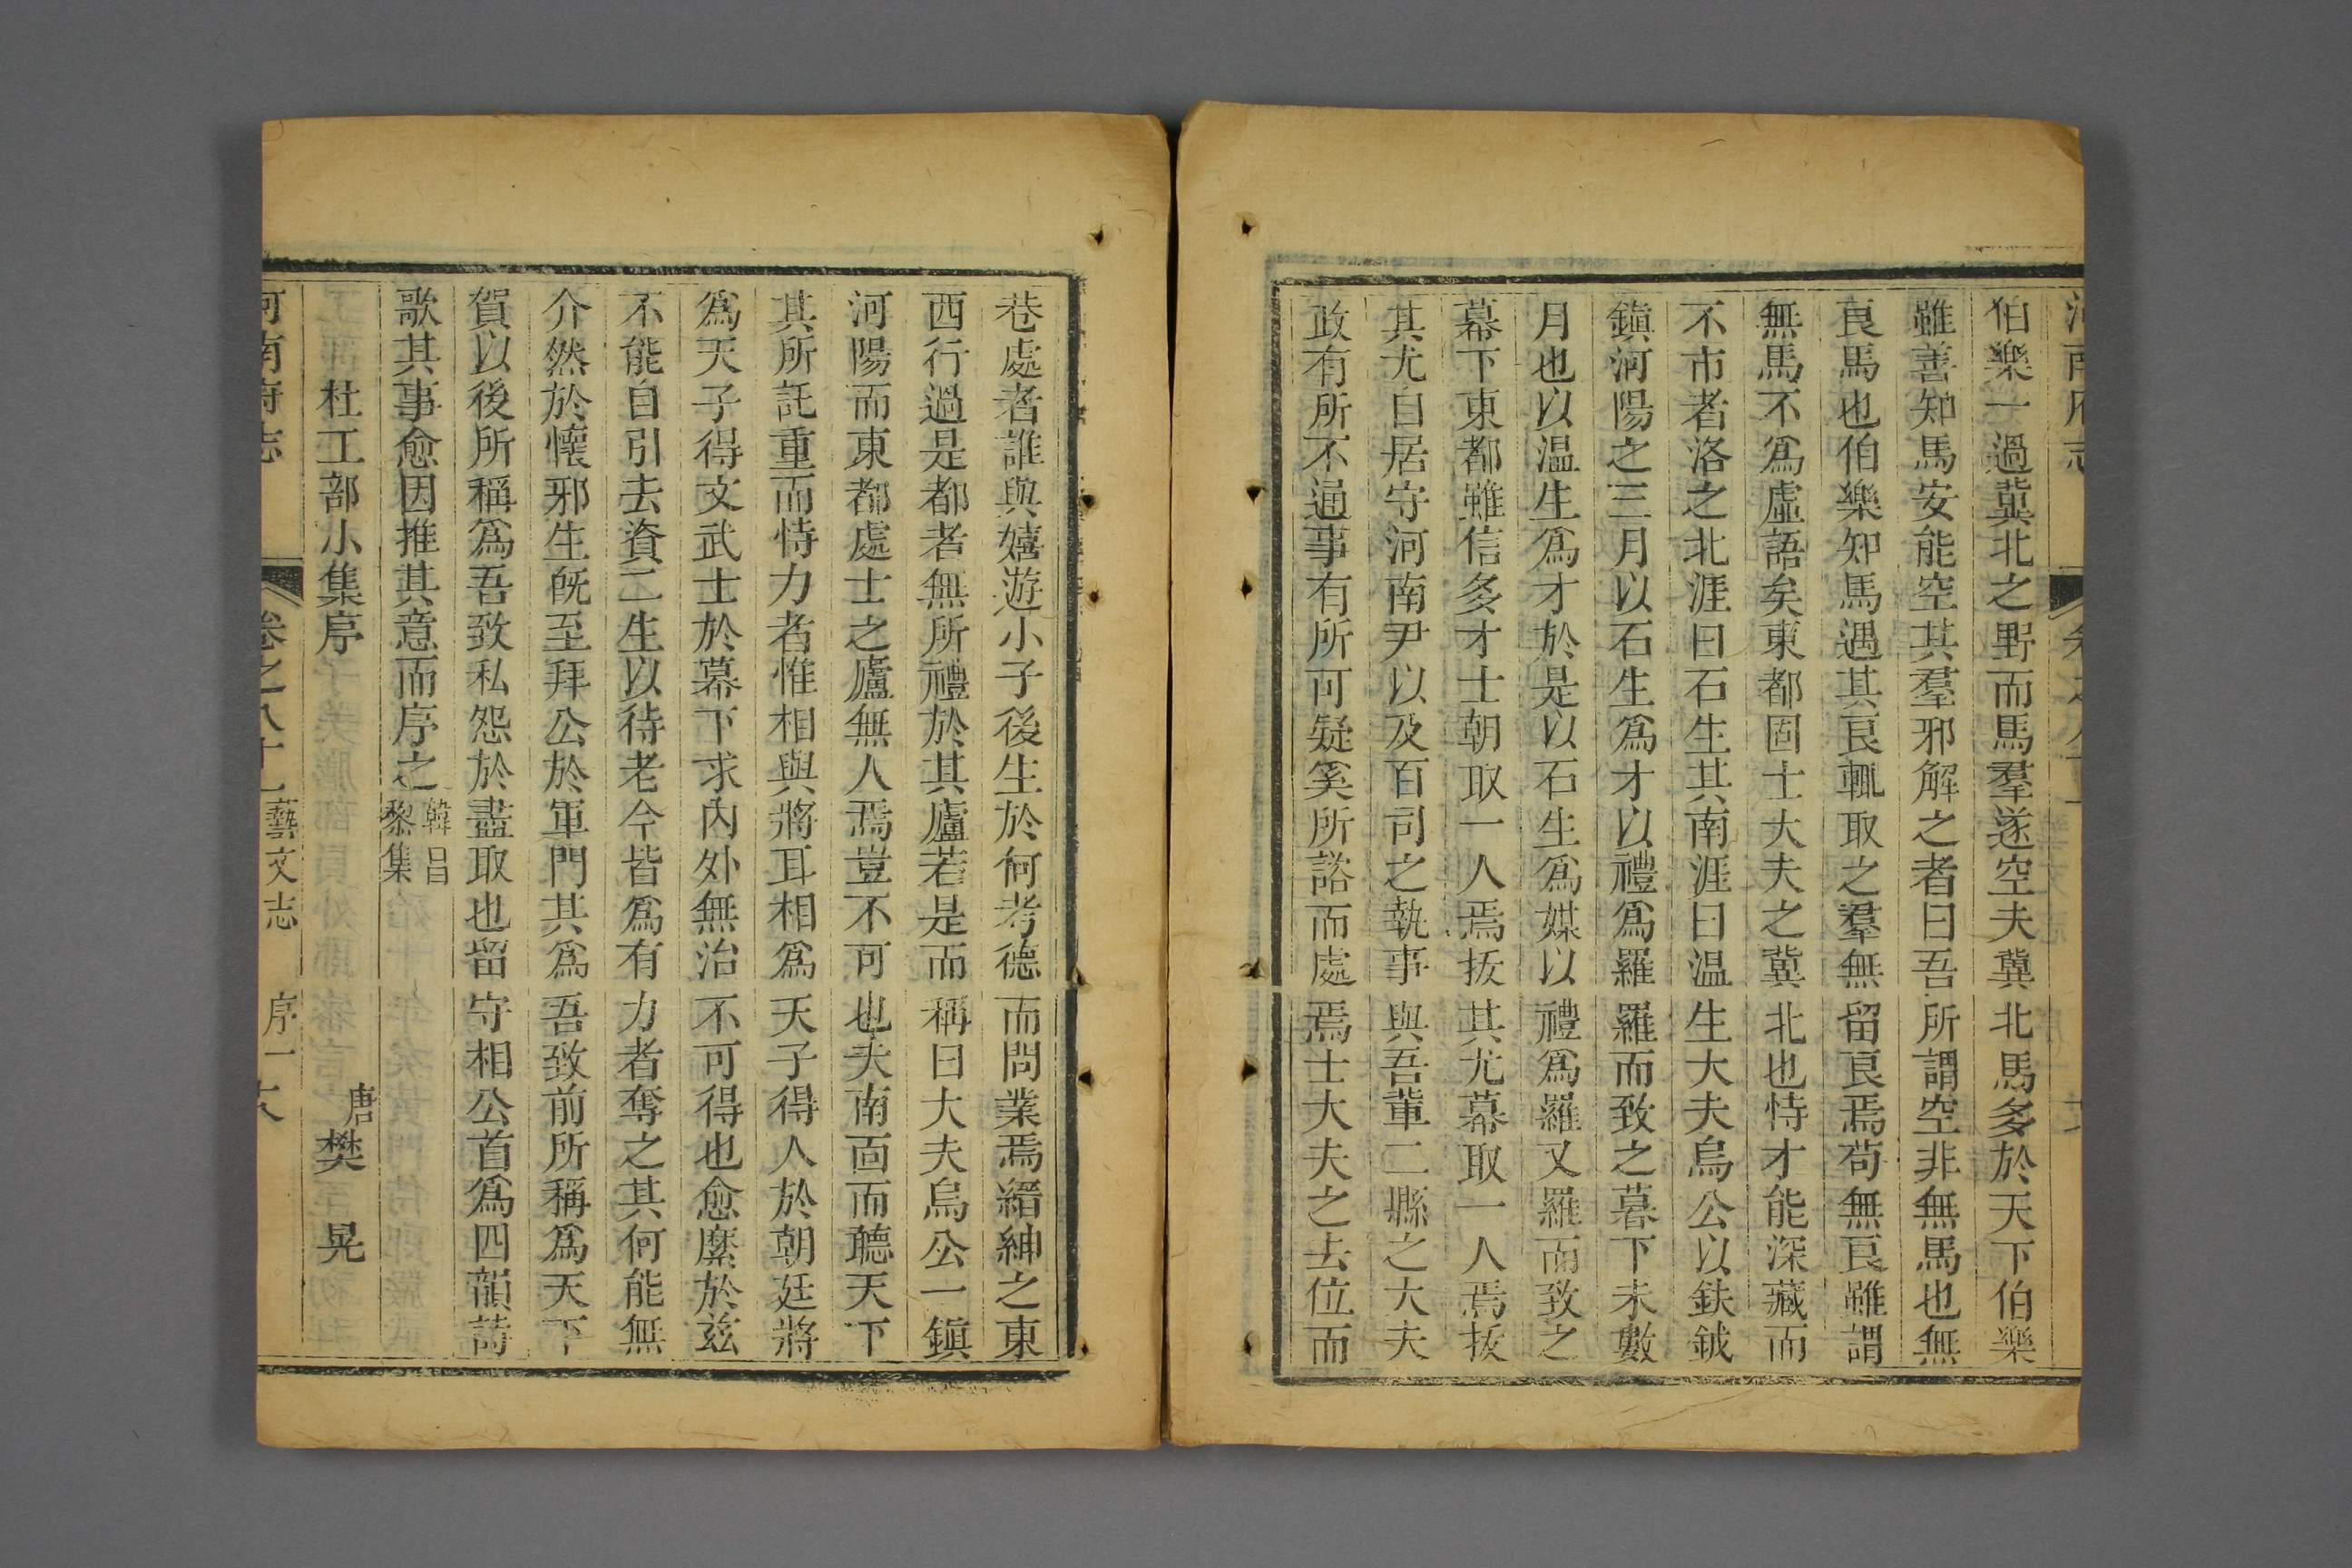 伯樂一過冀北之野而馬羣遂空夫冀北馬多於天下伯樂
雖善知馬安能空其羣邪解之者曰吾所謂空非無馬也無
良馬也伯樂知馬遇其良輒取之羣無留良焉苟無良雖謂
無馬不爲虛語矣東都固士大夫之冀北也恃才能深藏而
不市者洛之北涯曰石生其南涯曰温生大夫烏公以鈇鉞
鎮河陽之三月以石生爲才以禮爲羅羅而致之幕下未數
月也以温生爲才於是以石生爲媒以禮爲羅又羅而致之
幕下東都雖信多才士朝取一人焉拔其尤幕取一人焉拔
其尤自居守河南尹以及百司之執事與吾輩二縣之大夫
政有所不通事有所可疑奚所諮而處焉士大夫之去位而
巷處者誰與嬉遊小子後生於何考德而問業焉縉紳之東
西行過是都者無所禮於其廬若是而稱曰大夫烏公一鎮
河陽而東都處士之廬無人焉豈不可也夫南面而聽天下
其所託重而恃力者惟相與將耳相爲天子得人於朝廷將
爲天子得文武士於幕下求內外無治不可得也愈縻於茲
不能自引去資二生以待老今皆爲有力者奪之其何能無
介然於懷邪生旣至拜公於軍門其爲吾致前所稱爲天下
賀以後所稱爲吾致私怨於盡取也留守相公首爲四韻詩
歌其事愈因推其意而序之韓昌黎集
杜工部小集序 唐樊晃
河南府志 卷之八十 藝文志 序一